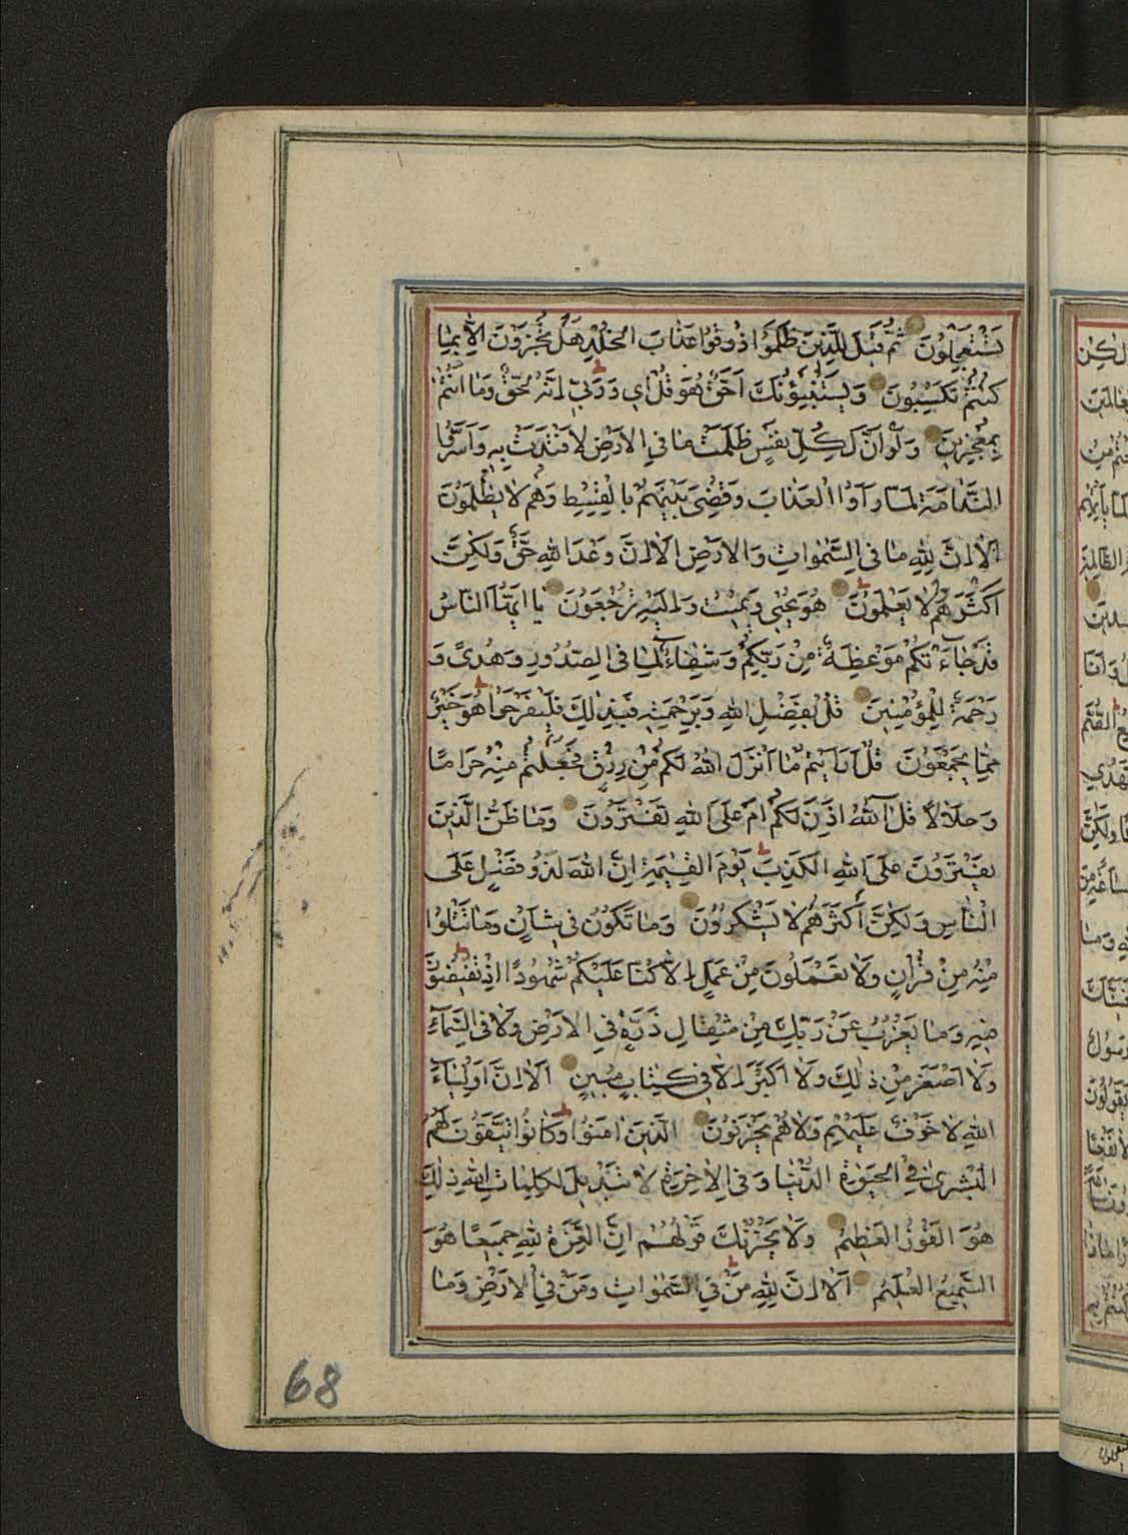 تَسْتَعْجِلُونَ ثُمَّ قِيلَ لِلَّذِينَ ظَلَمُوا ذُوقُوا عَذَابَ الْخُلْدِ هَلْ تُجْزَوْنَ اِلَّا بِمٰا
كُنْتُمْ تَكْسِبُونَ وَيَسْتَنْبِئُونَكَ اَحَقٌّ هُوَ قُلْ اِي وَرَبِّي اِنَّهُ لَحَقٌّ وَمٰا اَنْتُمْ
بِمُعْجِزِينَ وَلَوْ اَنَّ لِكُلِّ نَفْسٍ ظَلَمَتْ مٰا فِي الْاَرْضِ لَافْتَدَتْ بِهِ وَاَسَرُّوا
النَّدٰامَةَ لَمّٰا رَاَوُا الْعَذٰابَ وَقُضِيَ بَيْنَهُمْ بِالْقِسْطِ وَهُمْ لٰا يُظْلَمُونَ
اَلٰا اِنَّ لِلّٰهِ مٰا فِي السَّمٰوٰاتِ وَالْاَرْضِ اَلٰا اِنَّ وَعْدَ اللّٰهِ حَقٌّ وَلٰكِنَّ
اَكْثَرَهُمْ لٰا يَعْلَمُونَ هُوَ يُحْيِي وَيُمِيتُ وَاِلَيْهِ تُرْجَعُونَ يٰا اَيُّهَا النّٰاسُ
قَدْ جٰاءَتْكُمْ مَوْعِظَةٌ مِنْ رَبِّكُمْ وَشِفٰاءٌ لِمٰا فِي الصُّدُورِ وَهُدًى وَ
رَحْمَةٌ لِلْمُؤْمِنِينَ قُلْ بِفَضْلِ اللّٰهِ وَبِرَحْمَتِهِ فَبِذٰلِكَ فَلْيَفْرَحُوا هُوَ خَيْرٌ
مِمّٰا يَجْمَعُونَ قُلْ اَرَاَيْتُمْ مٰا اَنْزَلَ اللّٰهُ لَكُمْ مِنْ رِزْقٍ فَجَعَلْتُمْ مِنْهُ حَرٰامًا
وَحَلٰالًا قُلْ آللّٰهُ اَذِنَ لَكُمْ اَمْ عَلَى اللّٰهِ تَفْتَرُونَ وَمٰا ظَنُّ الَّذِينَ
يَفْتَرُونَ عَلَى اللّٰهِ الْكَذِبَ يَوْمَ الْقِيٰمَةِ اِنَّ اللّٰهَ لَذُو فَضْلٍ عَلَى
النّٰاسِ وَلٰكِنَّ اَكْثَرَهُمْ لٰا يَشْكُرُونَ وَمٰا تَكُونُ فِي شَاْنٍ وَمٰا تَتْلُوا
مِنْهُ مِنْ قُرْاٰنٍ وَلٰا تَعْمَلُونَ مِنْ عَمَلٍ اِلَّا كُنّٰا عَلَيْكُمْ شُهُودًا اِذْ تُفِيضُونَ
فِيهِ وَمٰا يَعْزُبُ عَنْ رَبِّكَ مِنْ مِثْقٰالِ ذَرَّةٍ فِي الْاَرْضِ وَلٰا فِي السَّمٰاءِ
وَلٰا اَصْغَرَ مِنْ ذٰلِكَ وَلٰا اَكْبَرَ اِلَّا فِي كِتٰابٍ مُبِينٍ اَلٰا اِنَّ اَوْلِيٰاءَ
اللّٰهِ لٰا خَوْفٌ عَلَيْهِمْ وَلٰا هُمْ يَحْزَنُونَ الَّذِينَ اٰمَنُوا وَكٰانُوا يَتَّقُونَ لَهُمُ
الْبُشْرٰى فِي الْحَيٰوةِ الدُّنْيٰا وَفِي الْاٰخِرَةِ لٰا تَبْدِيلَ لِكَلِمٰاتِ اللّٰهِ ذٰلِكَ
هُوَ الْفَوْزُ الْعَظِيمُ وَلٰا يَحْزُنْكَ قَوْلُهُمْ اِنَّ الْعِزَّةَ لِلّٰهِ جَمِيعًا هُوَ
السَّمِيعُ الْعَلِيمُ اَلٰا اِنَّ لِلّٰهِ مَنْ فِي السَّمٰوٰاتِ وَمَنْ فِي الْاَرْضِ وَمٰا
68